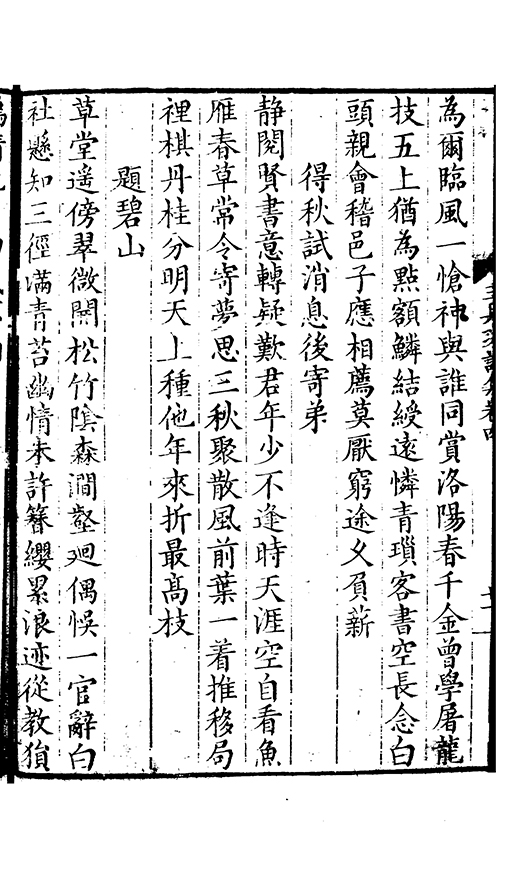 為爾臨風一愴神與誰同賞洛陽春千金曾學屠龍
技五上猶為點額鱗結綬遠憐青瑣客書空長念白
頭親會稽邑子應相薦莫厭窮途乆負薪
得秋試消息後寄弟
静閱賢書意轉疑歎君年少不逢時天涯空自看魚
雁春草常令寄夢思三秋聚散風前葉一着推移局
裡棋丹桂分明天上種他年來折最高枝
題碧山
草堂遙傍翠微開松竹陰森澗壑迴偶悞一官辭白
社懸知三徑滿青苔幽情未許簪纓累浪迹從教猿